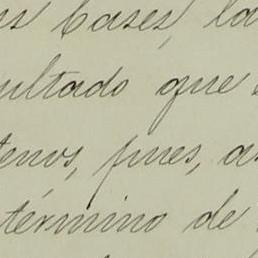 bases, la
ultado que
tenos, pues, a
término de